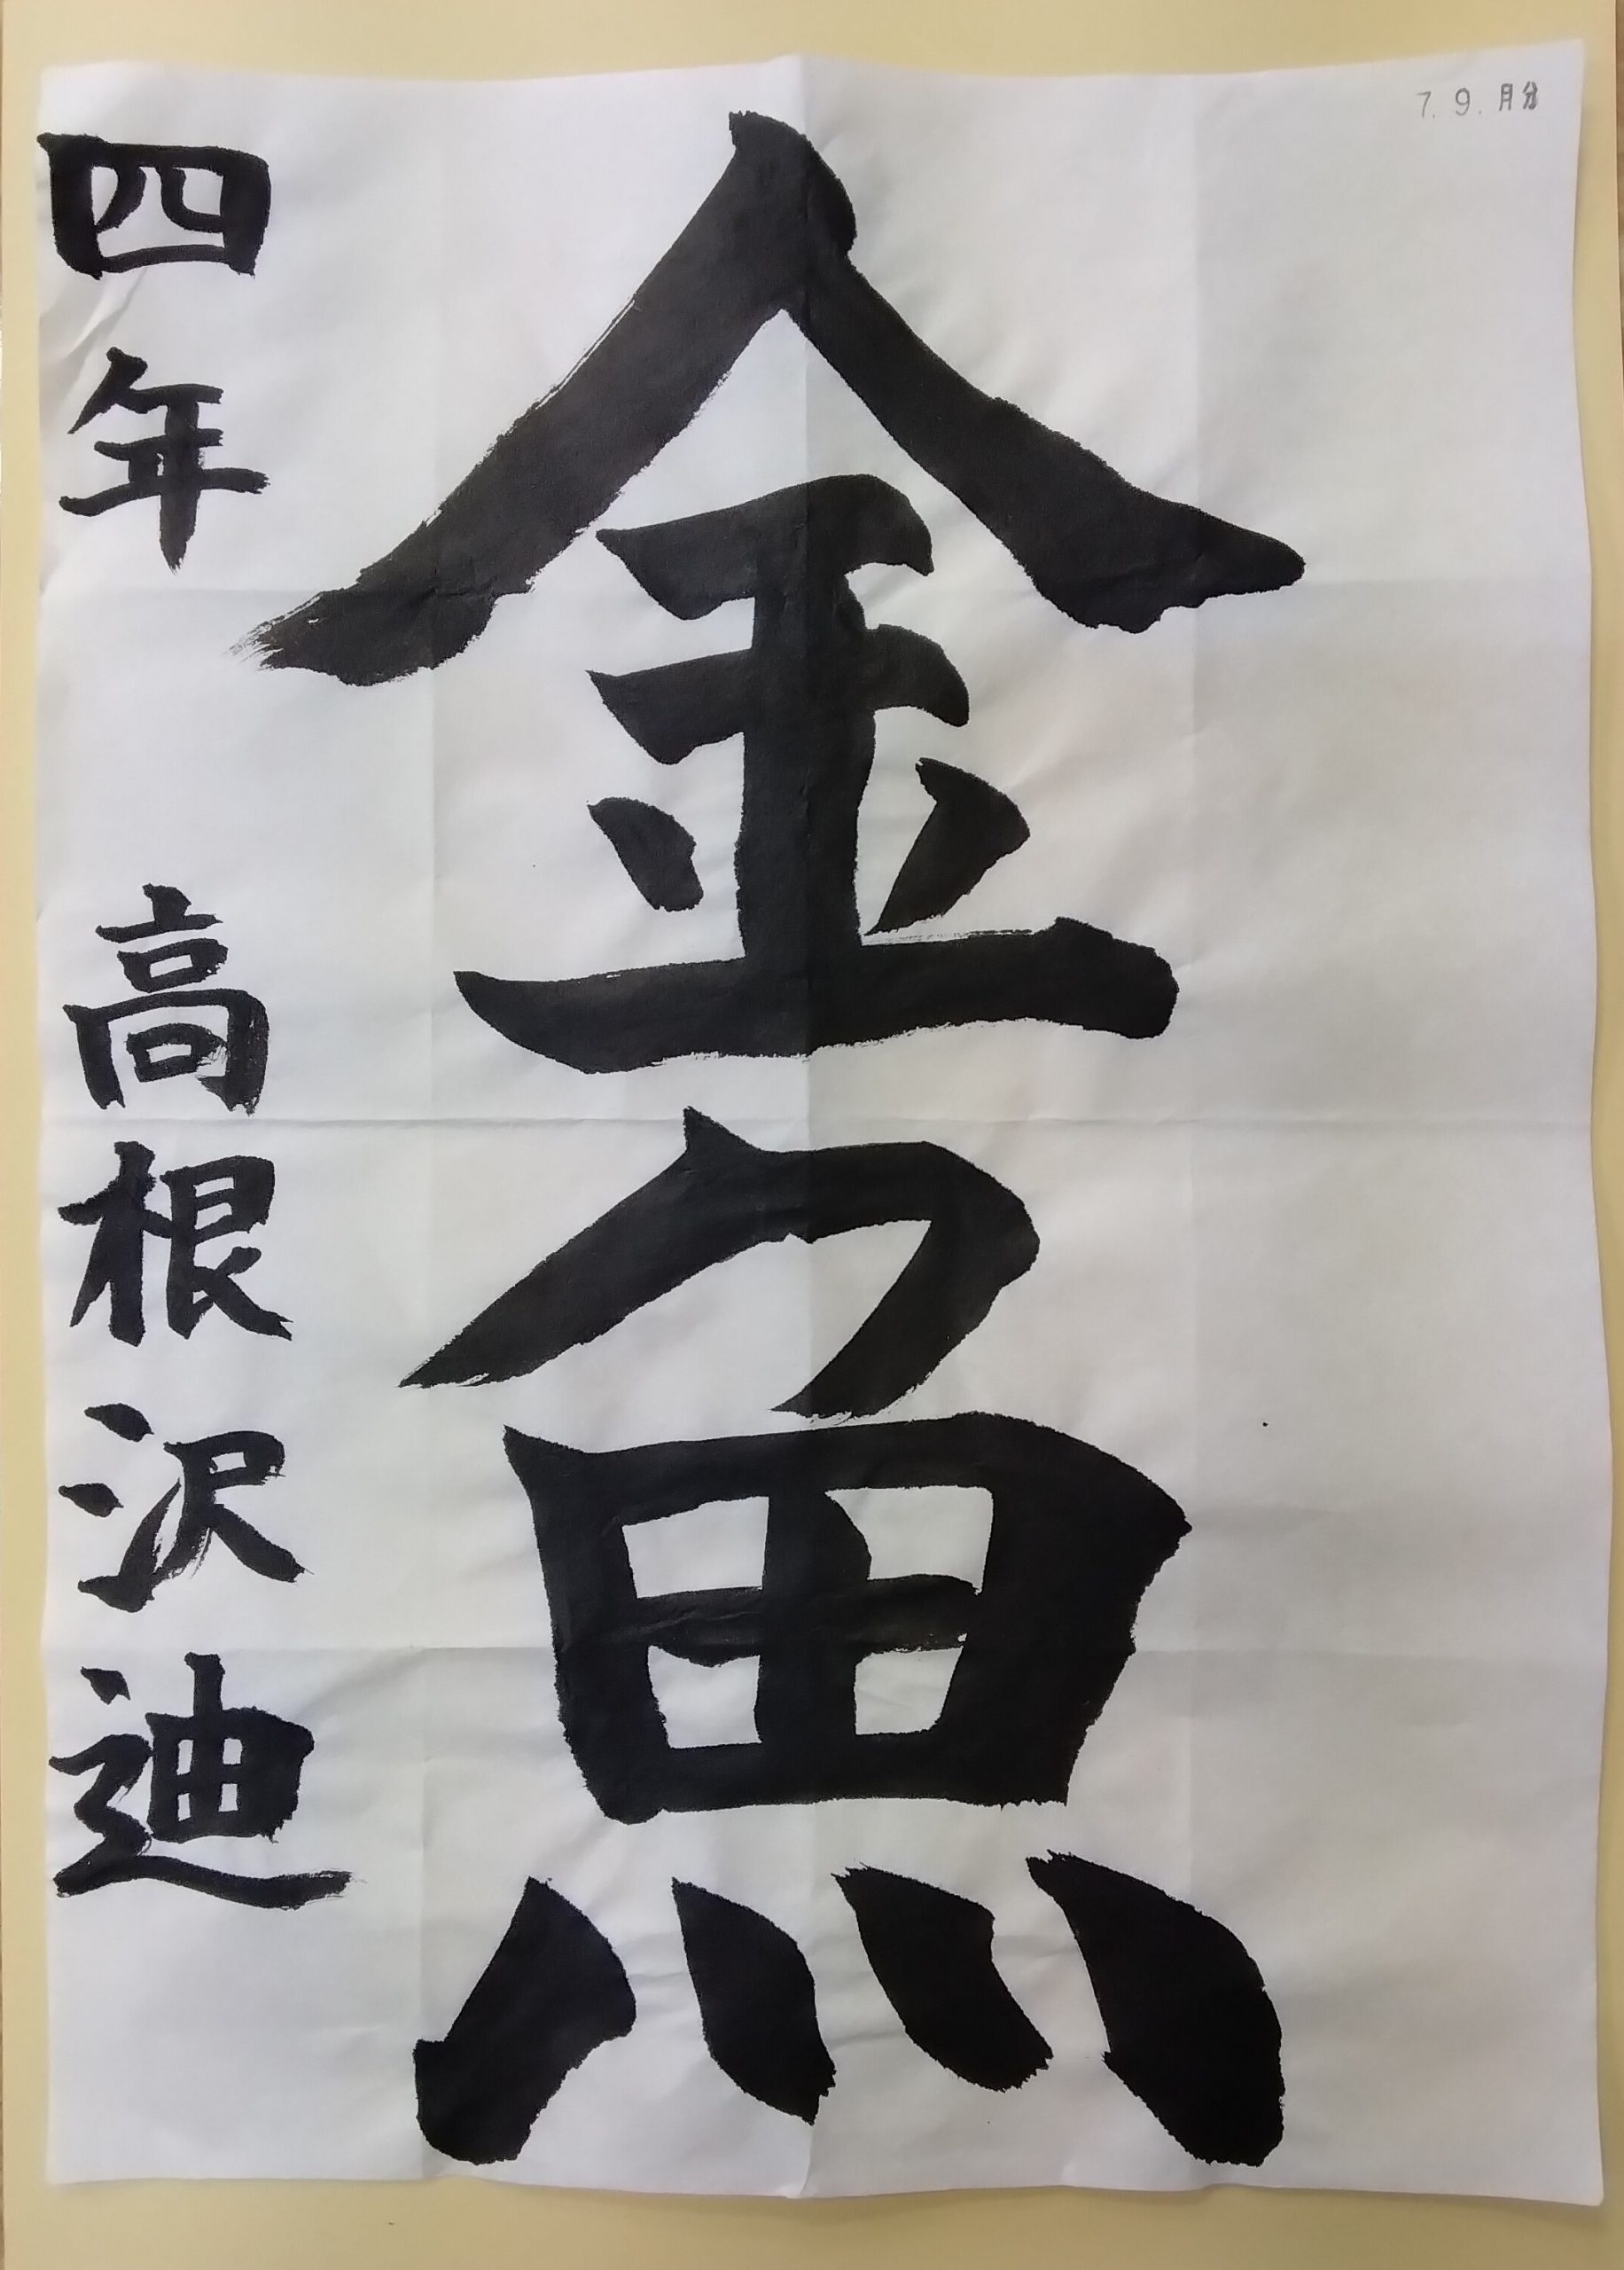 7.9.月分
金魚
四年 高根沢迪